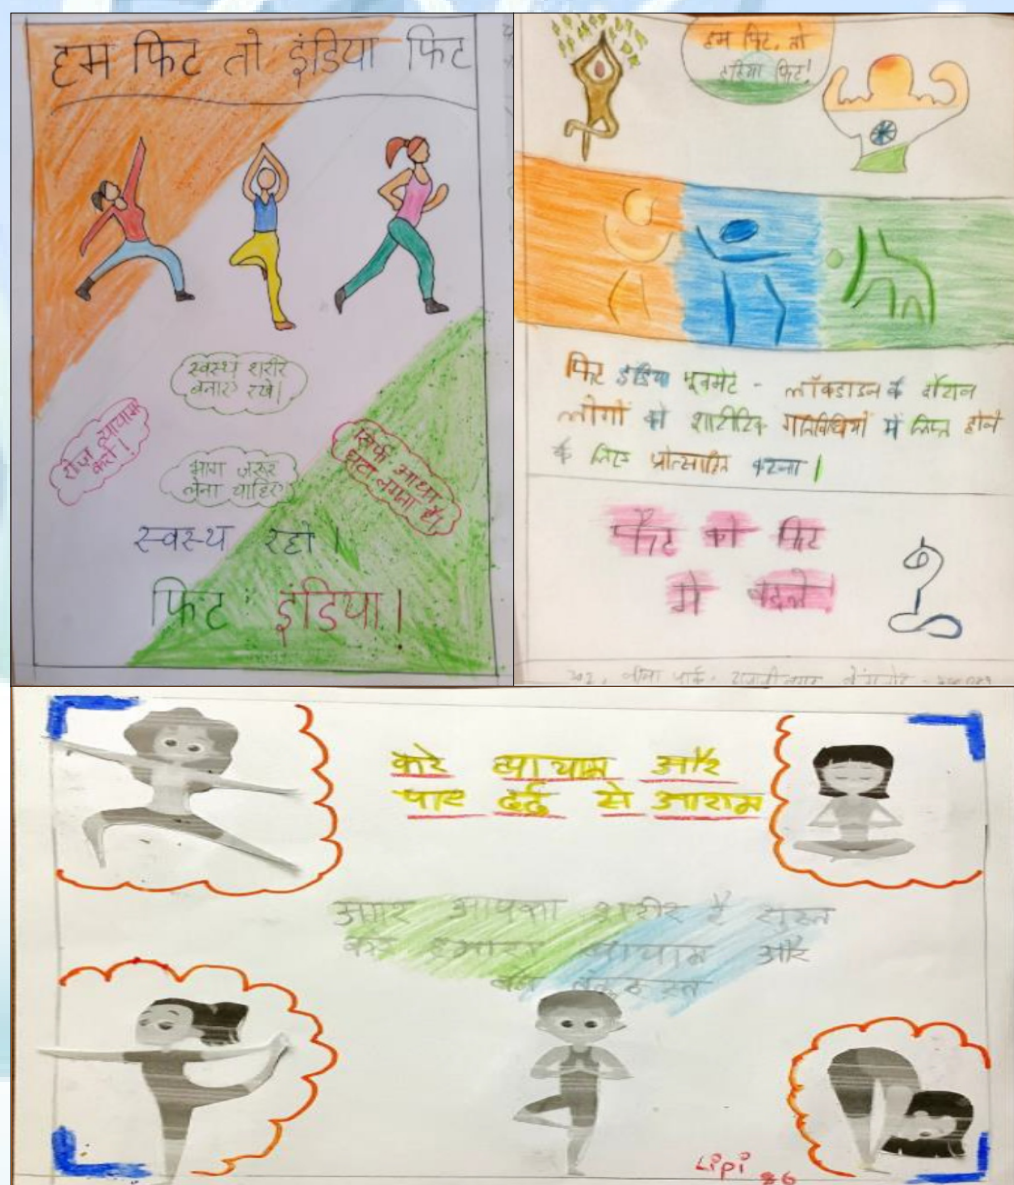 हम फिट तो इंडिया फिट
स्वस्थ शरीर
बनाए रखे।
रोज़ व्यायाम
करो!
भाग जरूर
लेना चाहिए
सिर्फ आधा
घंटा लगता है।
स्वस्थ रहो।
फिट इंडिया।
हम फिट, तो
इंडिया फिट!
फिट इंडिया मूवमेंट - लॉकडाउन के दौरान
लोगों को शारीरिक गतिविधियों में लिप्त होने
के लिए प्रोत्साहित करना।
फैट को फिट
में बदले!
202, पार्क,
करे व्यायाम और
पाए दर्द से आराम
अगर आपका शरीर है सुस्त
व्यायाम और
Lipi 86